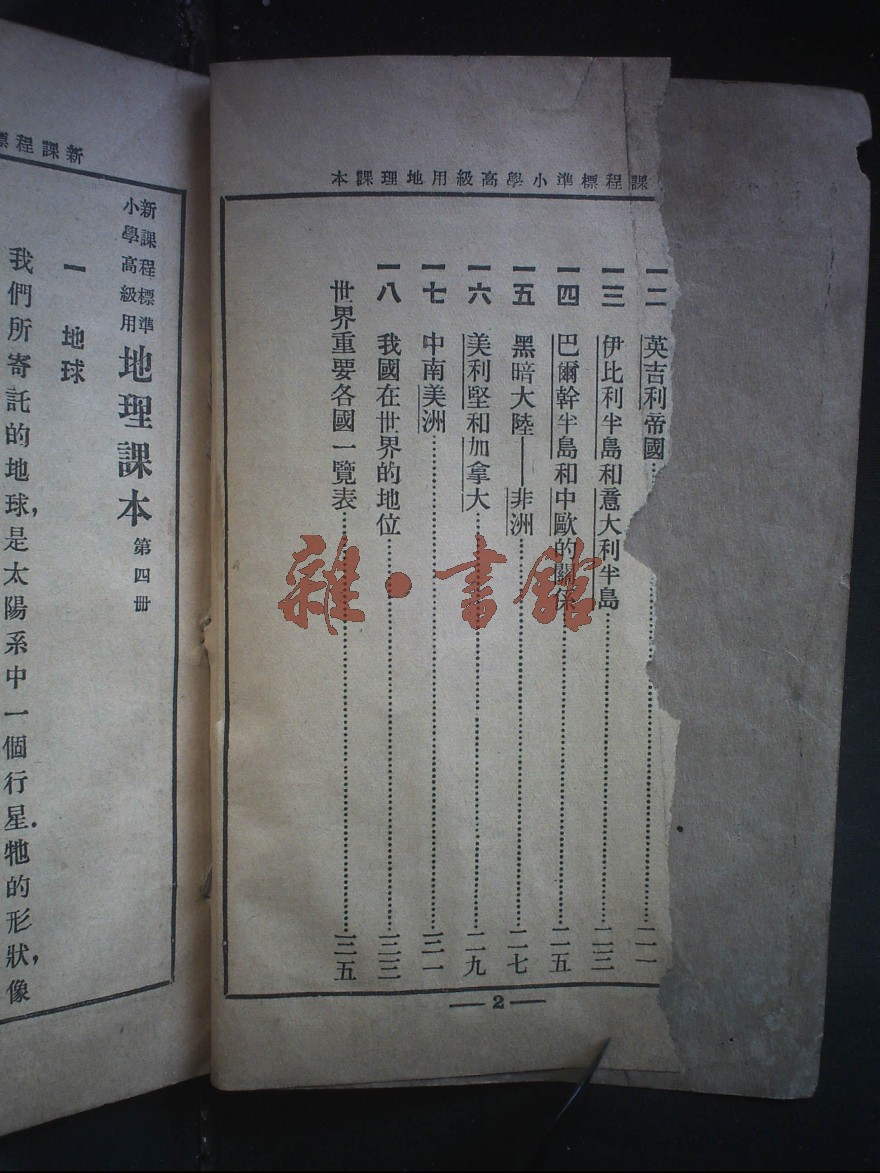 課程標準小學高級用地理課本
一二 英吉利帝國……二一
一三 伊比利半島和意大利半島……二三
一四 巴爾幹半島和中歐的關係……二五
一五 黑暗大陸——非洲……二七
一六 美利堅和加拿大……二九
一七 中南美洲……三一
一八 我國在世界的地位……三三
世界重要各國一覽表……三五
—2—
雜·書館
新課程標
新課程標準
小學高級用
地理課本 第四册
一 地球
我們所寄託的地球，是太陽系中一個行星．牠的形狀，像